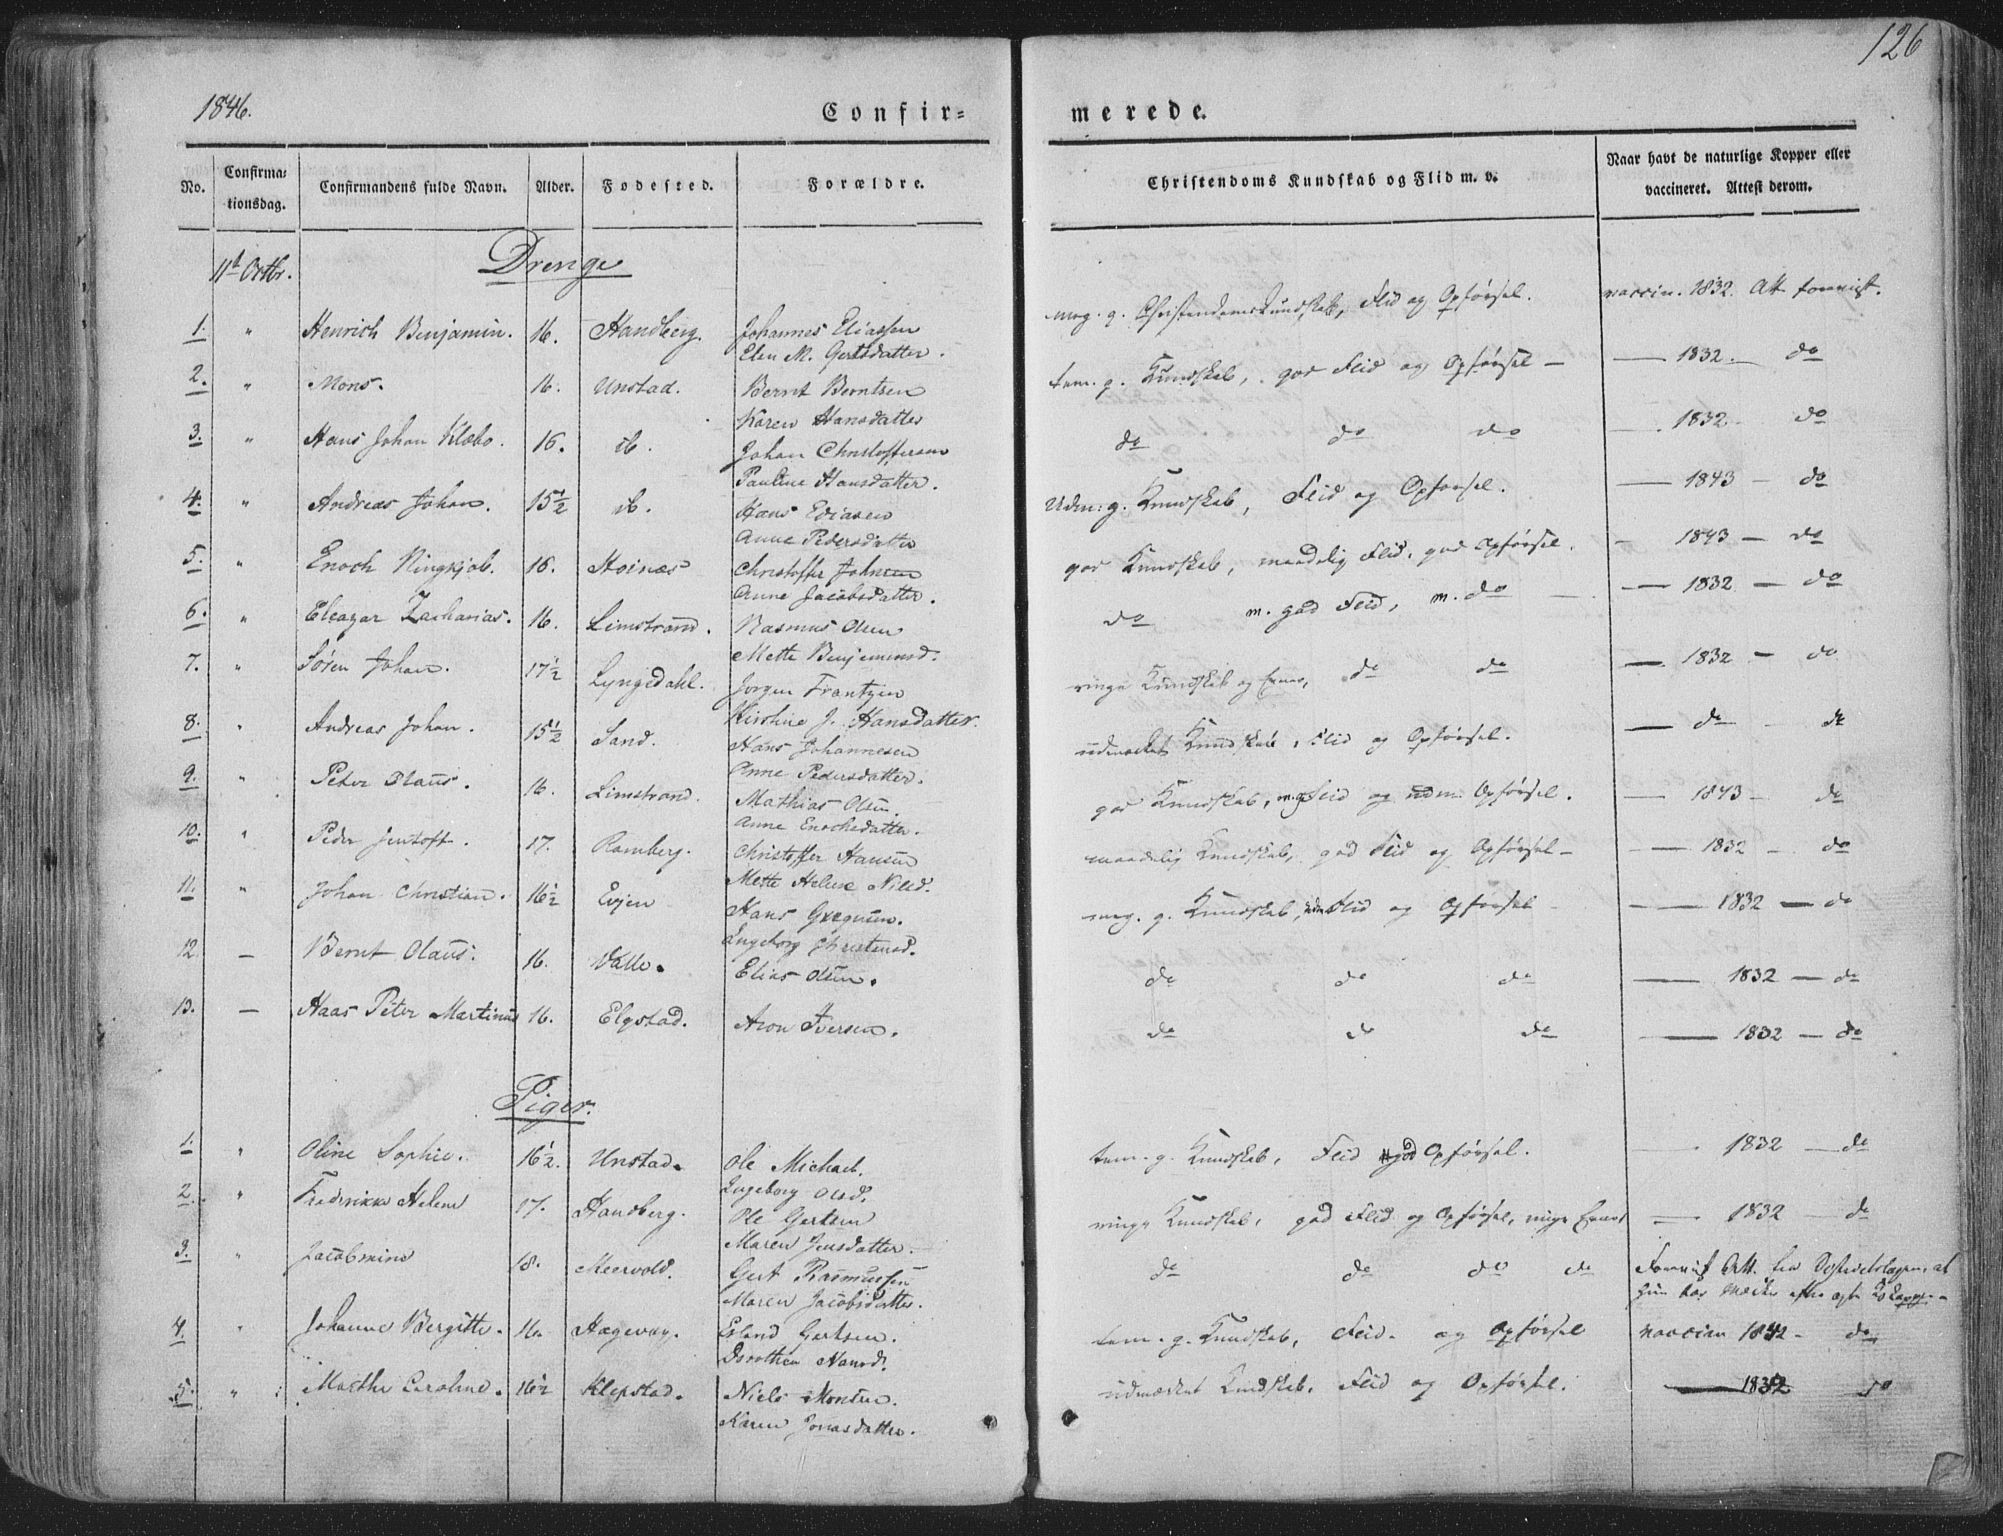 126
1846.
Confir-
merede.
No.
Confirma-
tionsdag.
Confirmandens fulde Navn.
Alder.
Fødested.
Forældre.
Christendoms Kundskab og Flid m. v.
Naar havt de naturlige Kopper eller
vaccineret. Attest derom.
11t Octbr.
Drenge
1. " Henrich Benjamin. 16. Handberg. Johannes Eliassen
Elen M. Gertsdatter.
meg. g. Christendomskundskab, Flid og Opførsel. vaccin. 1832. Att
2. " Mons. 16. Unstad. Bernt Berntsen
Karen Hansdatter
tem. g. Kundskab, god Flid og Opførsel — — 1832. do
3. " Hans Johan Klæbo. 16. ib. Johan Christoffersen
Pauline Hansdatter.
do do do — 1832. do
4. " Andreas Johan. 15½ ib. Hans Eliasen
Anne Pedersdatter
Udm: g. Kundskab, Flid og Opførsel. — 1843 — do
5. " Enoch Ringkjøb. 16. Hoinæs Christoffer Johnsen
Anne Jacobsdatter.
god Kundskab, maadelig Flid, god Opførsel. — 1843 — do
6. " Eleazar Zacharias. 16. Limstrand. Rasmus Olsen
Mette Benjeminsd.
do m. god Flid, m. do — 1832 — do
7. " Søren Johan. 17½ Lyngedahl. Jørgen Frantzen
Kirstine J. Hansdatter.
ringe Kundskab og do do — 1832 — do
8. " Andreas Johan. 15½ Sand. Hans Johannesen
Anne Pedersdatter.
udmærket Kundskab, Flid og Opførsel. — do — do
9. " Peter Olaus. 16. Limstrand. Mathias Olsen.
Anne Enochsdatter.
god Kundskab, m. g. Flid og udm. Opførsel. — 1843 — do
10. " Peder Jentoft. 17. Ramberg. Christoffer Hansen
Mette Helene Nilsd.
maadelig Kundskab, god Flid og Opførsel — — 1832 — do
11. " Johan Christian. 16½ Evjen Hans
Ingeborg Christensd.
meg. g. Kundskab, Flid og Opførsel — 1832 — do
12. — Bernt Olaus. 16. Valle. Elias Olsen.
do do do — 1832 — do
13. — Haas Peter Martinus 16. Elgstad. Aron Iversen.
do do do — 1832 — do
Piger.
1. " Oline Sophie. 16½. Unstad. Ole Michael.
Ingeborg Olsd.
tem. g. Kundskab, Flid god Opførsel. — 1832 — do
2. " Fredrikke Helene 17. Handberg. Ole Gertsen
Maren Jensdatter.
ringe Kundskab, god Flid og Opførsel, ringe — 1832 — do
3. " Jacobmine 18. Meervold. Gert Rasmussen
Maren Jacobsdatter.
do do do do Att. fra Districtslægen, at
hun har Mærke efter
4. " Johanne Bergitte. 16. Hagevag. Erland Gertsen.
Dorothea Hansd.
tem. g. Kundskab, Flid. og Opførsel vaccin 1842 — do
5. " Marthe Caroline. 16½ Klepstad. Niels Monsen.
Karen Jonasdatter.
udmærket Kundskab, Flid og Opførsel. — 1832 do